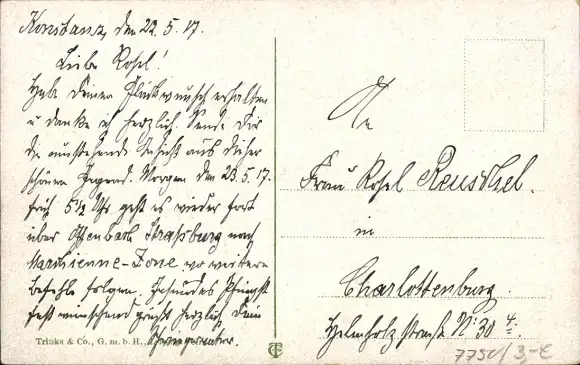 Konstanz, den 22.5.17.
Liebe Rosel!
Habe Deinen Glückwunsch erhalten
u danke ich herzlich. Sende Dir
die umstehende Ansicht aus dieser
schönen Gegend. Morgen den 23.5.17.
früh 5½ Uhr geht es wieder fort
über Offenbach Straßburg nach
Marchienne-Zone wo weitere
Befehle folgen. Gesundes Pfingst
fest wünschend grüßt herzlich Dein
Trinks & Co., G. m. b. H.,
An
Frau Rosel Reuschel.
in
Charlottenburg.
Helmholzstraße No: 30 4:
7750/3,-€